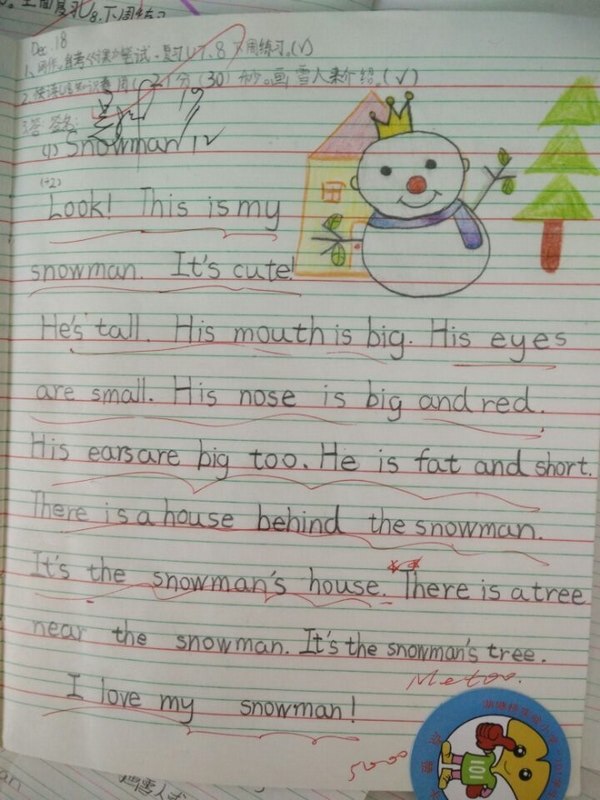 Dec. 18
(1) Snowman
(+2)
Look! This is my
snowman. It's cute!
He's tall. His mouth is big. His eyes
are small. His nose is big and red.
His ears are big too. He is fat and short.
There is a house behind the snowman.
It's the snowman's house. There is a tree
near the snowman. It's the snowman's tree.
Me too.
I love my snowman!
101